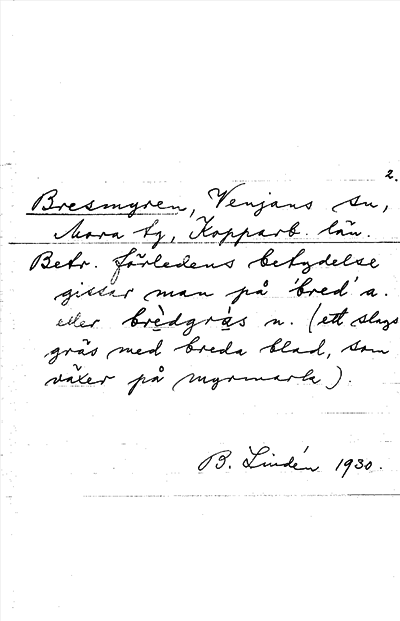 2.
Bresmyren, Venjans sn,
Mora tg, Kopparb. län.
Betr. förledens betydelse
gissar man på 'bred' a.
eller brèdgràs n. (ett slags
gräs med breda blad, som
växer på myrmark).
B. Lindén 1930.